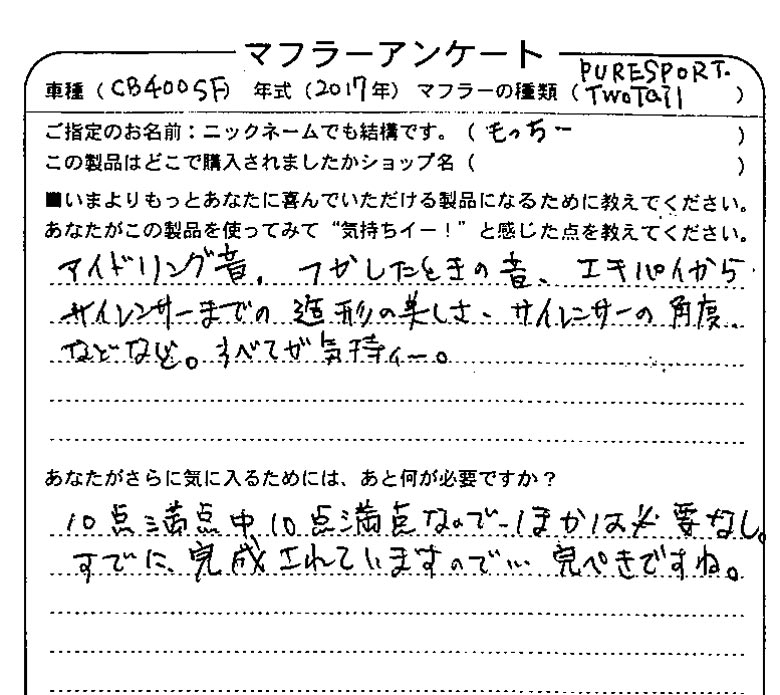 マフラーアンケート
車種（CB400SF）年式（2017年）マフラーの種類（PURESPORT. TwoTail）
ご指定のお名前：ニックネームでも結構です。（もっちー）
この製品はどこで購入されましたかショップ名（　）
■いまよりもっとあなたに喜んでいただける製品になるために教えてください。
あなたがこの製品を使ってみて“気持ちイー！”と感じた点を教えてください。
アイドリング音、ふかしたときの音、エキパイから
サイレンサーまでの造形の美しさ、サイレンサーの角度、
などなど。すべてが気持ィー。
あなたがさらに気に入るためには、あと何が必要ですか？
10点満点中10点満点なので、ほかは必要なし。
すでに、完成されていますので… 完ぺきですね。